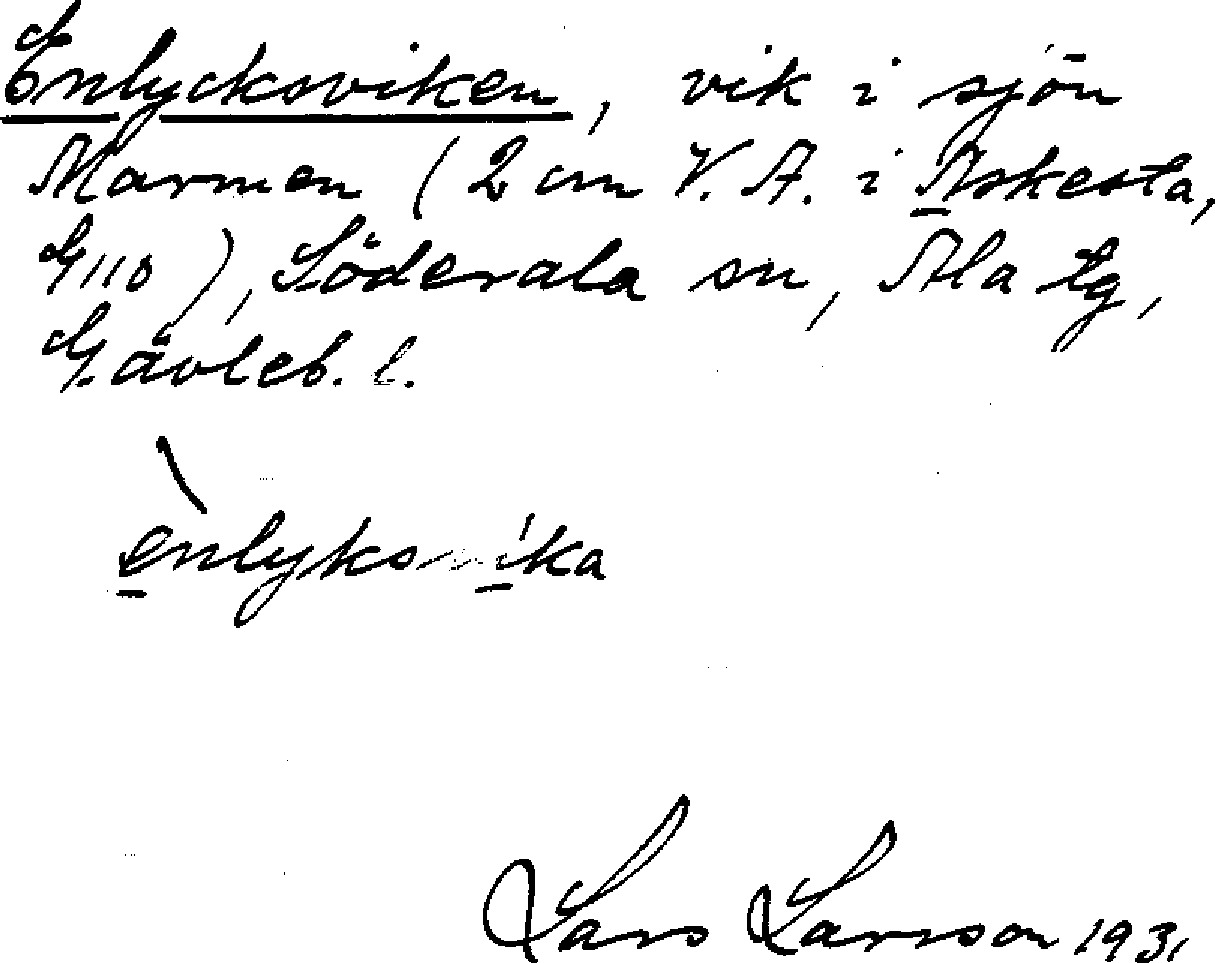 Enlycksviken, vik i sjön
Marmen (2 cm V. A. i Askesta,
G110), Söderala sn, Ala tg,
Gävleb. l.
ènlyksvika
Lars Larsson 1931